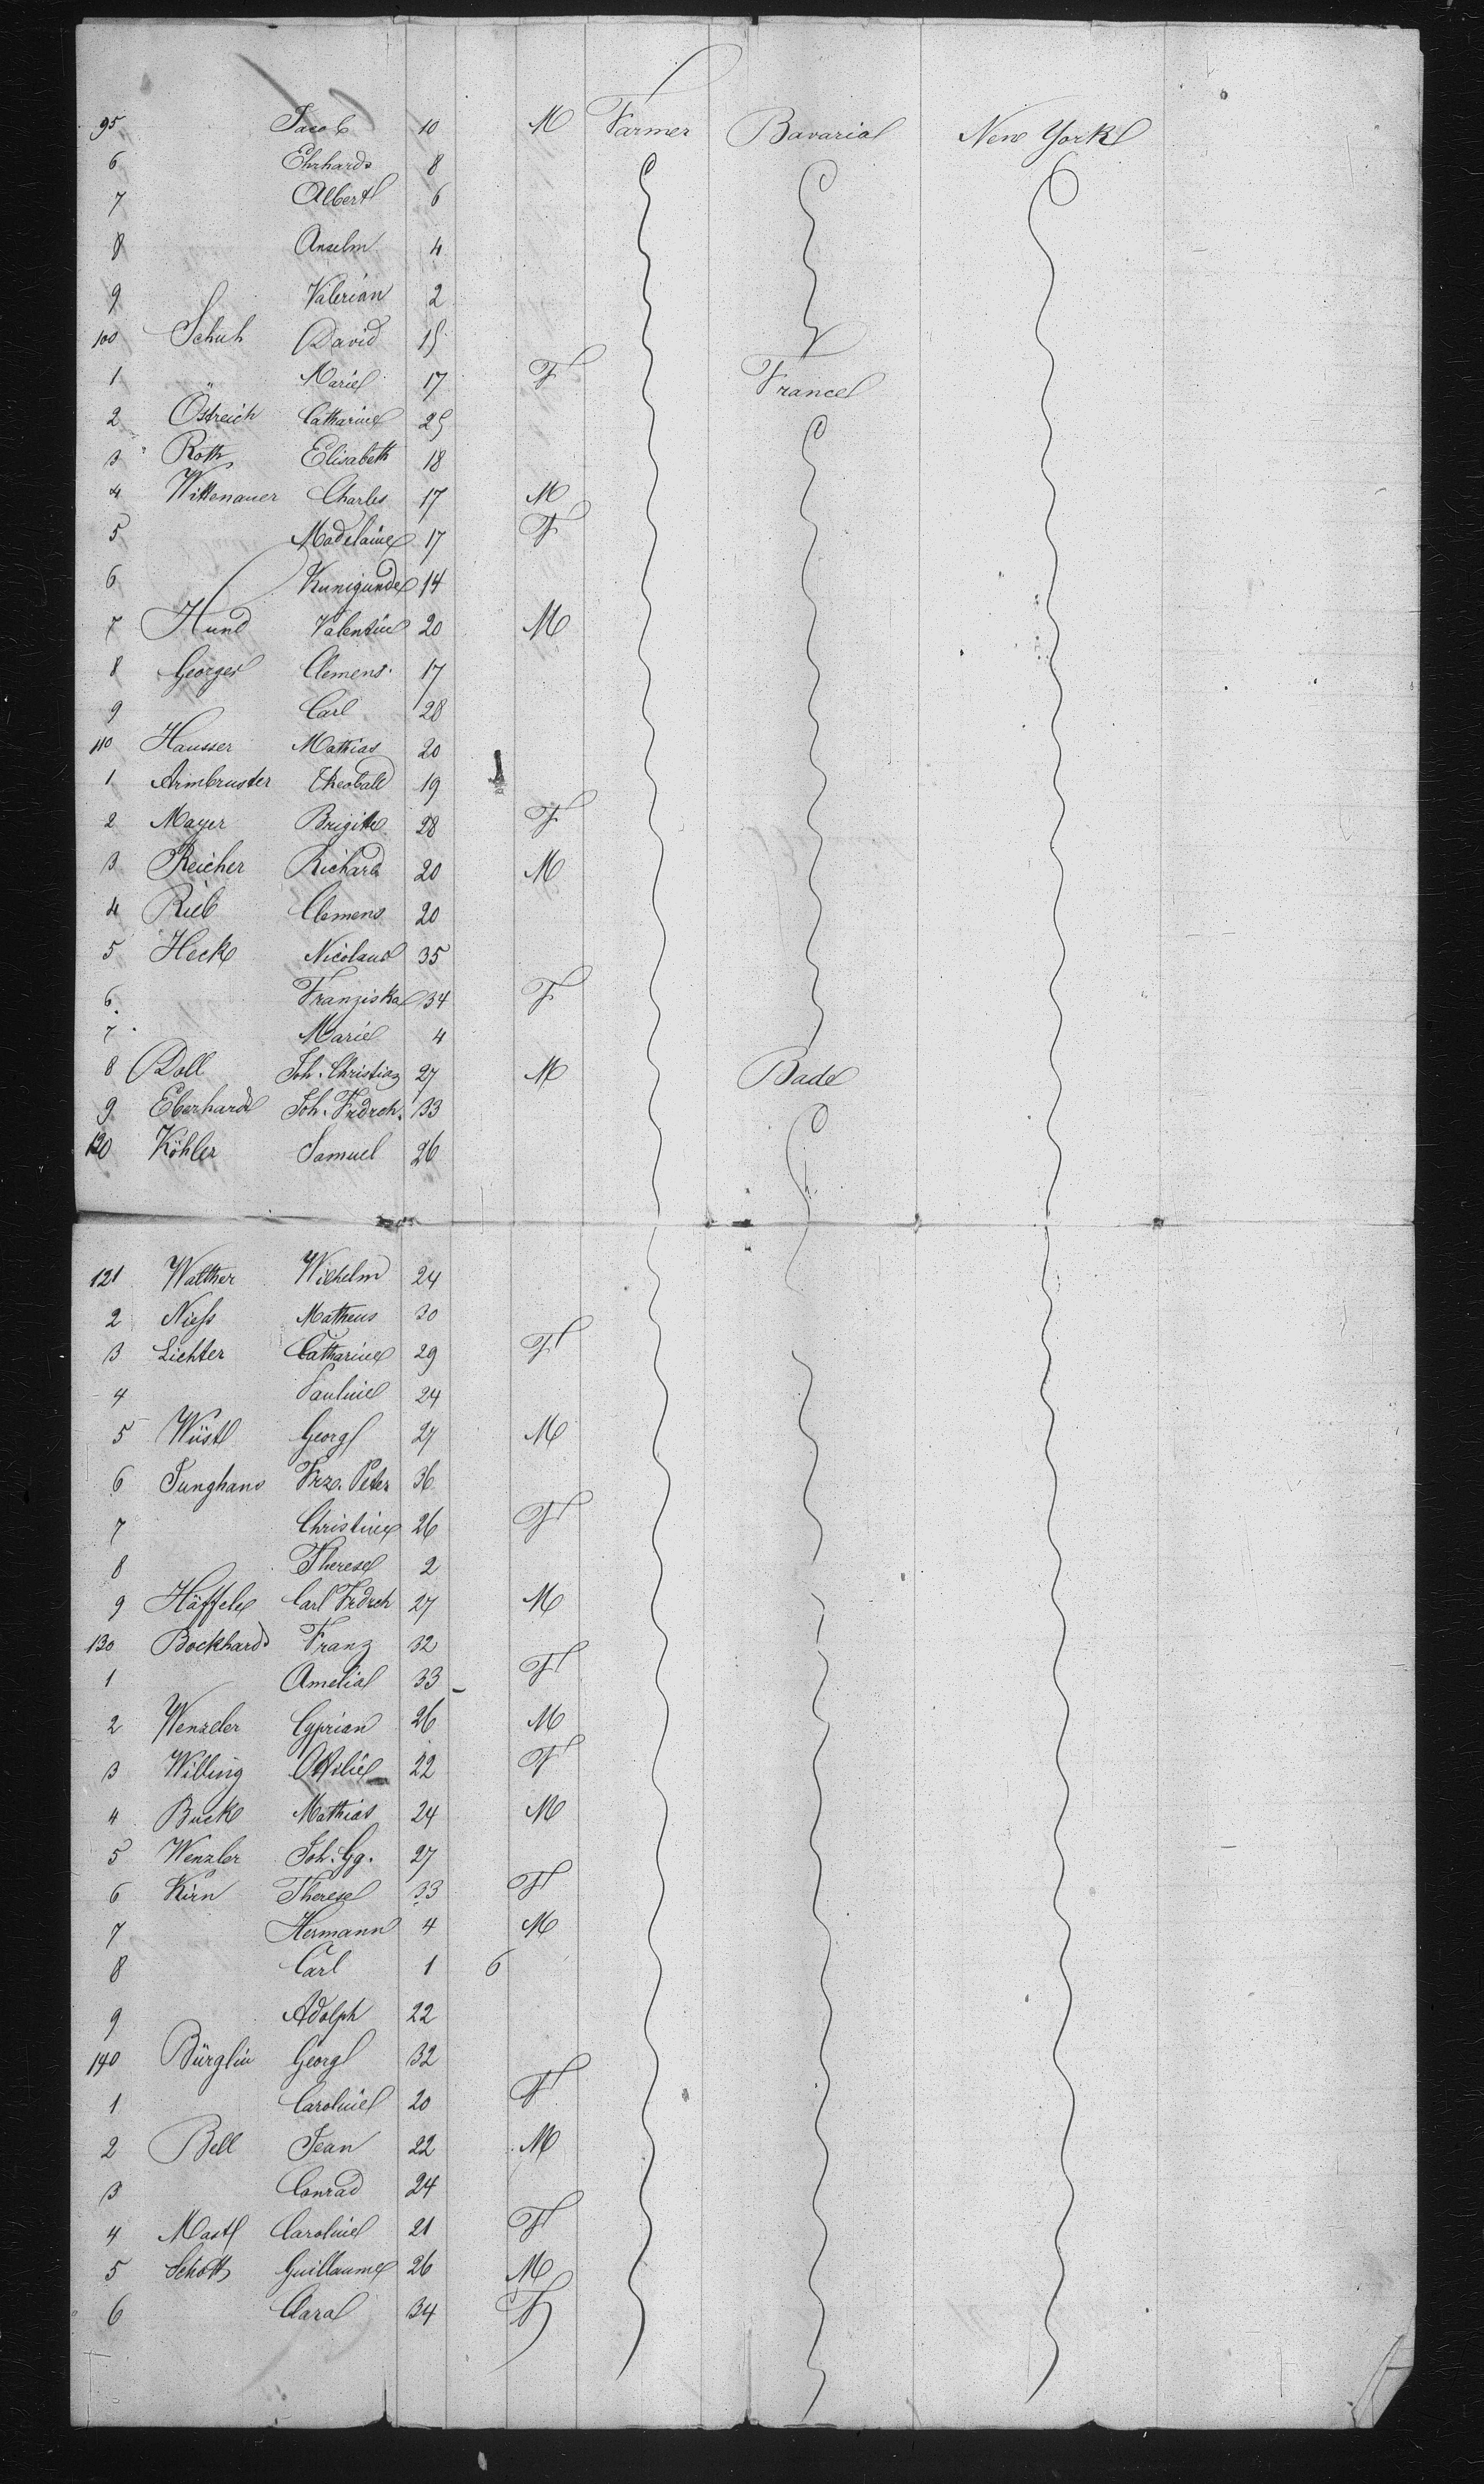 95 Jacob 10 M Farmer Bavaria New York
6 Ehrhard 8
7 Albert 6
8 Anselm 4
9 Valerian 2
100 Schuh David 15
1 " Marie 17 F France
2 Östreich Catharine 25
3 " Roth Elisabeth 18
4 Wittenauer Charles 17 M
5 Madelaine 17 F
6 Kunigunde 14
7 Hund Valentin 20 M
8 Georges Clemens 17
9 Carl 28
110 Hausser Mathias 20
1 Armbruster Theobald 19
2 Mayer Brigitte 28 F
3 Reicher Richard 20 M
4 Rieb Clemens 20
5 Heck Nicolaus 35
6 Franziska 34 F
7 Marie 4
8 Doll Joh. Christian 27 M Bade
9 Eberhard Joh. Frdrch. 33
120 Köhler Samuel 26
121 Walther Wilhelm 24
2 Niess Matheus 30
3 Lichter Catharine 29 F
4 Pauline 24
5 Wüst Georg 27 M
6 Junghans Frz. Peter 36
7 Christine 26 F
8 Therese 2
9 Häffele Carl Frdrch 27 M
130 Bockhard Franz 32
1 Amelia 33 F
2 Wenzler Cyprian 26 M
3 Willing Ottilie 22 F
4 Buck Mathias 24 M
5 Wenzler Joh. Gg. 27
6 Kirn Therese 33 F
7 Hermann 4 M
8 Carl 1 6
9 Adolph 22
140 Bürglin Georg 32
1 Caroline 20 F
2 Bell Jean 22 M
3 Conrad 24
4 Mast Caroline 21 F
5 Schott Guillaume 26 M
6 Clara 34 F